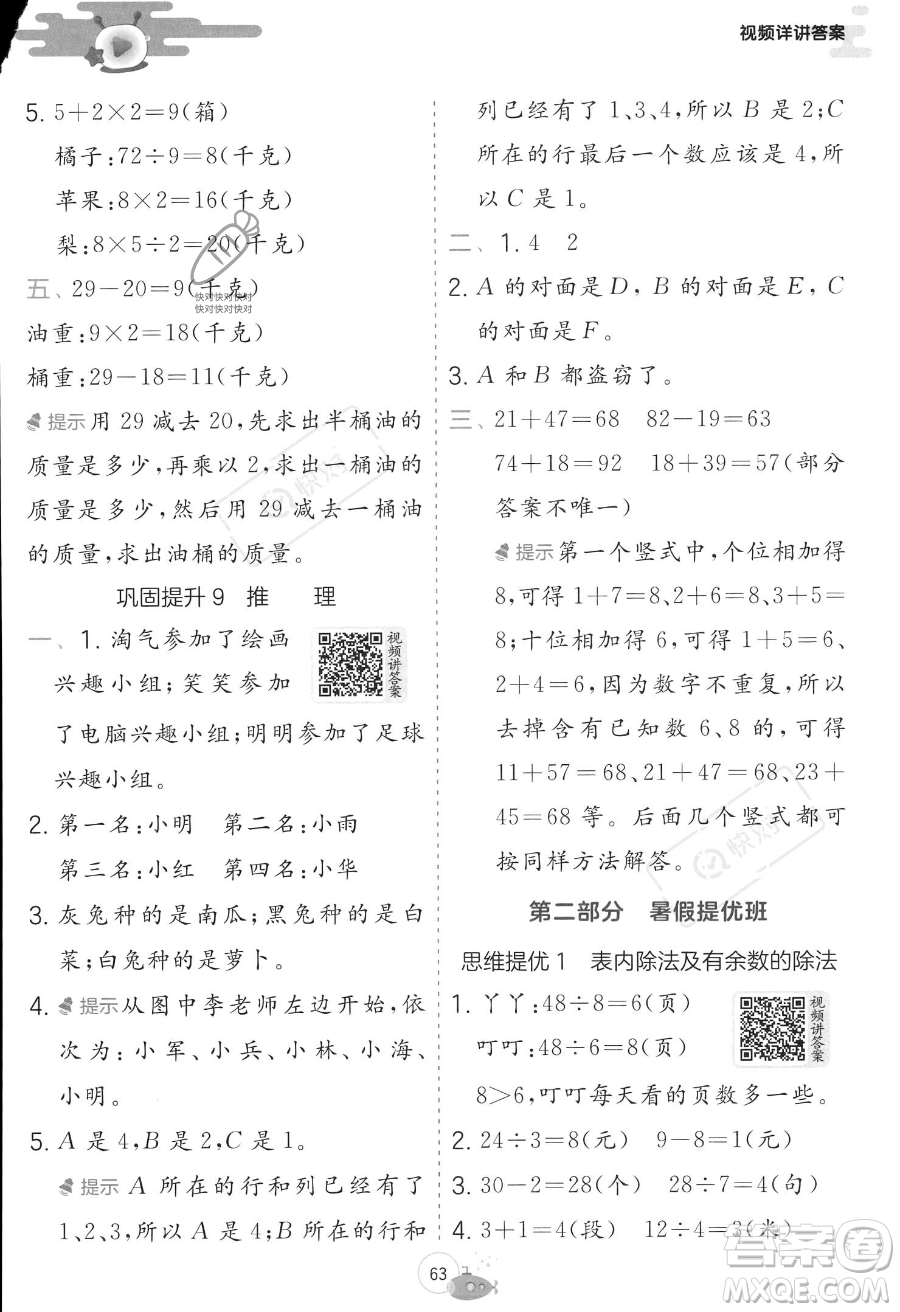 视频详讲答案
5. 5+2×2=9(箱)
橘子:72÷9=8(千克)
苹果:8×2=16(千克)
梨:8×5÷2=20(千克)
快对快对快对
快对快对快对
五、29-20=9(千克)
油重:9×2=18(千克)
桶重:29-18=11(千克)
提示 用 29 减去 20,先求出半桶油的
质量是多少,再乘以 2,求出一桶油的
质量是多少,然后用 29 减去一桶油
的质量,求出油桶的质量。
巩固提升 9 推 理
一、1. 淘气参加了绘画
兴趣小组;笑笑参加
了电脑兴趣小组;明明参加了足球
兴趣小组。
视频讲答案
2. 第一名:小明 第二名:小雨
第三名:小红 第四名:小华
3. 灰兔种的是南瓜;黑兔种的是白
菜;白兔种的是萝卜。
4. 提示 从图中李老师左边开始,依
次为:小军、小兵、小林、小海、
小明。
5. A 是 4,B 是 2,C 是 1。
提示 A 所在的行和列已经有了
1、2、3,所以 A 是 4;B 所在的行和
列已经有了 1、3、4,所以 B 是 2;C
所在的行最后一个数应该是 4,所
以 C 是 1。
二、1. 4 2
2. A 的对面是 D,B 的对面是 E,C
的对面是 F。
3. A 和 B 都盗窃了。
三、21+47=68 82-19=63
74+18=92 18+39=57(部分
答案不唯一)
提示 第一个竖式中,个位相加得
8,可得 1+7=8、2+6=8、3+5=
8;十位相加得 6,可得 1+5=6、
2+4=6。因为数字不重复,所以
去掉含有已知数 6、8 的,可得
11+57=68、21+47=68、23+
45=68 等。后面几个竖式都可
按同样方法解答。
第二部分 暑假提优班
思维提优 1 表内除法及有余数的除法
1. 丫丫:48÷8=6(页)
叮叮:48÷6=8(页)
8>6,叮叮每天看的页数多一些。
视频讲答案
2. 24÷3=8(元) 9-8=1(元)
3. 30-2=28(句) 28÷7=4(句)
4. 3+1=4(段) 12÷4=3(米)
63
快对
快对
答案圈
MXQE.COM